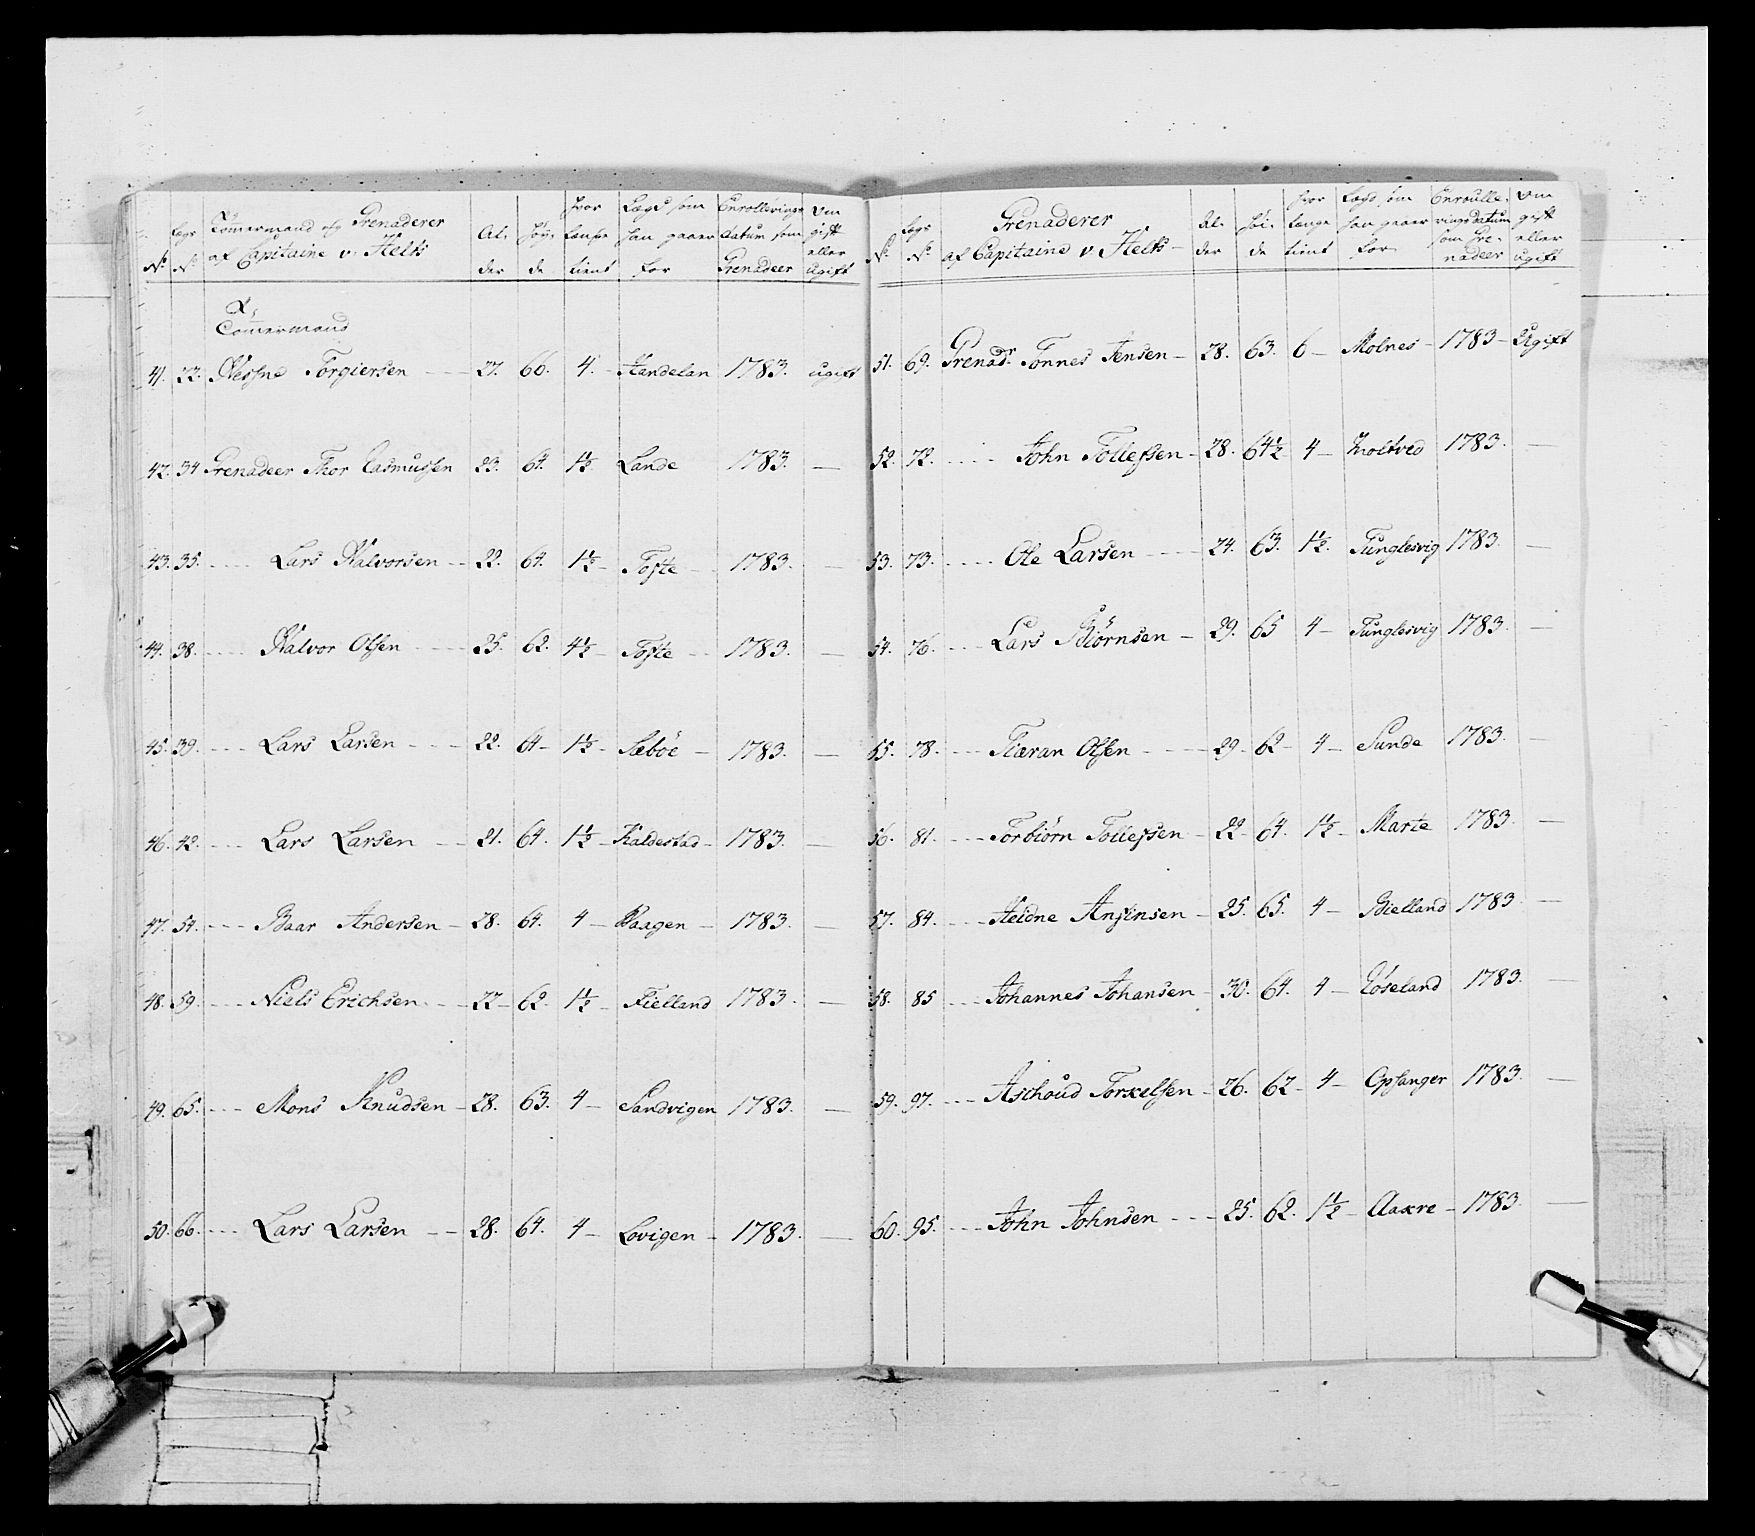 No. Lægs No. Tømermand og Grenaderer af Capitaine v. Helts Al-der Høy-de hvor længe tient Lægd som han gaaer for Enrollerings datum som Grenadeer om gift eller ugift
Tømermand
41. 22. Torgiersen 27. 66. 4. Handeland 1783. ugift
42. 34 Grenadeer Thor Rasmussen 23. 64. 1½ Lande 1783. —
43. 35. Lars Halvorsen 22. 64. 1½ Tofte 1783. —
44. 38. Halvor Olsen 25. 62. 4½ Tofte 1783. —
45. 39. Lars Larsen 22. 64 1½ Sæbøe 1783. —
46. 42. Lars Larsen 21. 64. 1½ Kaldestad 1783. —
47. 54. Baar Andersen 28. 64. 4 Vaagen 1783. —
48. 59. Niels Erichsen 22 62. 1½ Fielland 1783. —
49. 65. Mons Knudsen 28. 63. 4 Sandvigen 1783. —
50. 66. Lars Larsen 28. 64. 4 Lovigen 1783. —
No. Lægs No. Grenaderer af Capitaine v Helts Al-der Høi-de hvor længe tient Lægd som han gaaer for Enroulle-ringsdatum som Gre-nadeer om gift eller ugift
51. 69. Grenadr Tønnes Jensen 28. 63. 6 Molnes 1783 Ugift
52. 72. John Tollefsen 28. 64½ 4 Holtved 1783. —
53. 73. Ole Larsen 24. 63. 1½. Tunglesvig 1783. —
54. 76. Lars Biørnsen 29. 65 4 Tunglesvig 1783. —
55. 78. Olsen 29. 62 4 Sunde 1783. —
56. 81. Torbiørn Tollefsen 22 64. 1½ Marte 1783. —
57. 84. Heidne 25. 65. 4 Bielland 1783. —
58. 85 Johannes Johansen 30. 64. 4 Røseland 1783.
59. 97. Torkelsen 26. 62 4 Opsanger 1783. —
60. 95. John Johnsen 25. 62. 1½ Aakre 1783. —